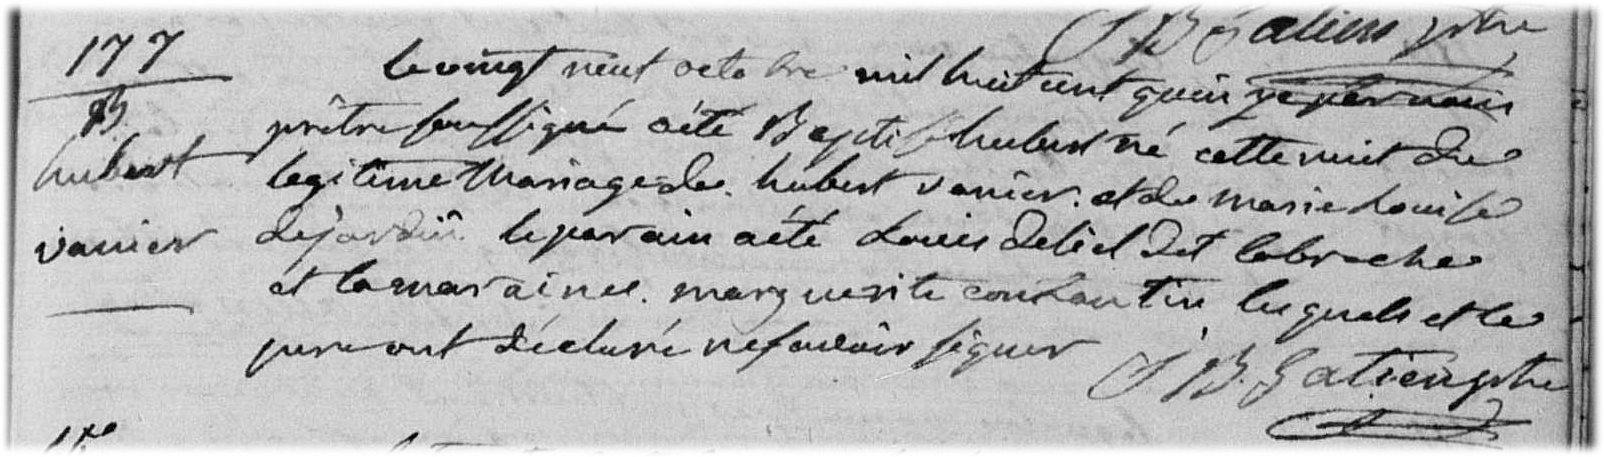 J B Gatien ptre
177
B
hubert
vanier
le vingt neuf octobre mil huit cent quinze par nous
prêtre soussigné a été Baptisé hubert né cette nuit du
legitime Mariage de hubert vanier. et de marie Louise
dejardin. le parain a été Louis deliel dit labreche
et la maraine. marguerite constantin lesquels et le
pere ont déclaré ne savoir signer
J B. Gatien ptre